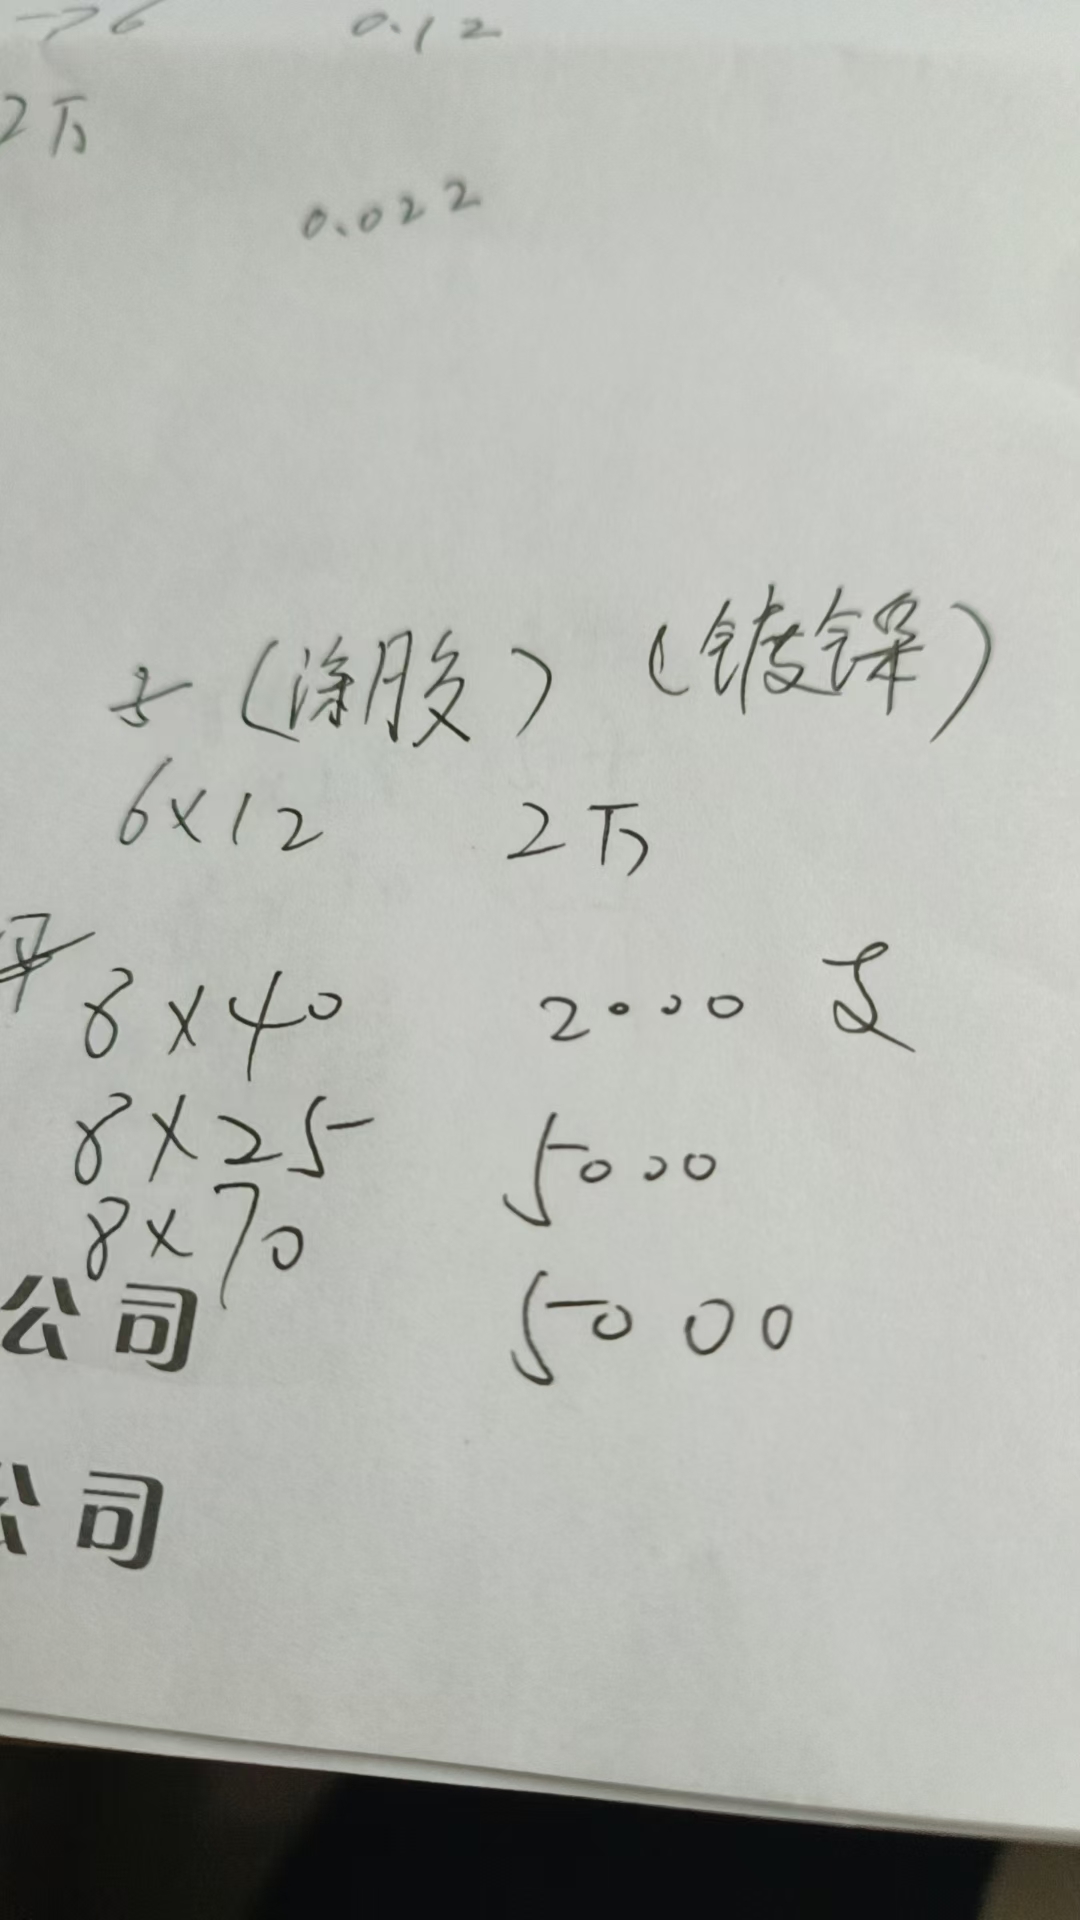 0.12
2万
0.022
(涂胶) (镀镍)
6×12 2万
平 8×40 2000 支
8×25 5000
8×70 5000
公司
公司